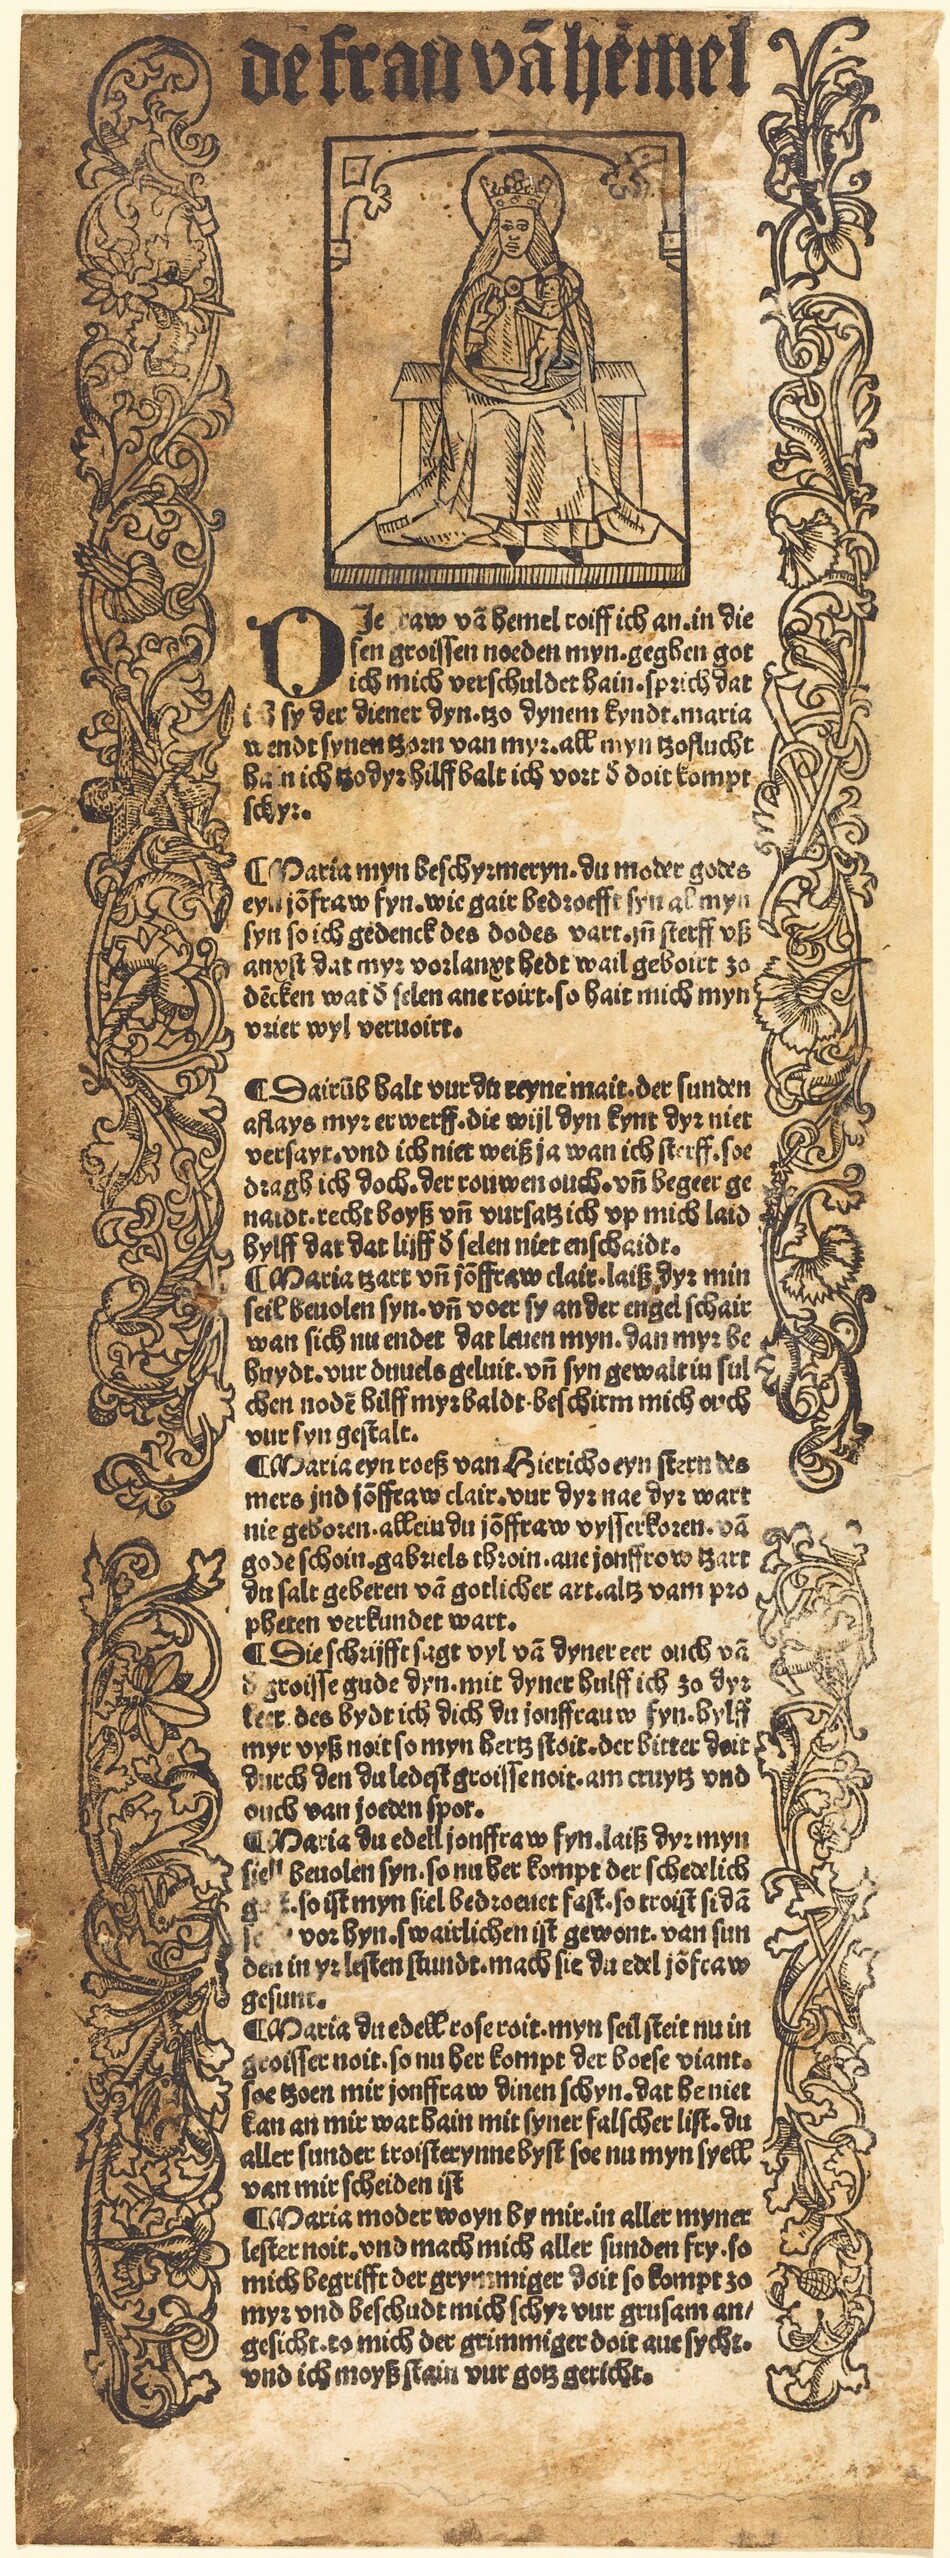 dē frau vā hēmel
O Je raw vā hemel roiff ich an. in die
sen groissen noeden myn. gegben got
ich mich verschuldet hain. sprich dat
sy der diener dyn. tzo dynem kyndt. maria
wendt synen tzorn van myr. all myn tzoflucht
ha n ich tzo dyr hilff balt ich vort d̄ doit kompt
schyr.
¶ Maria myn beschyrmeryn. du moder godes
eyn jōfraw fyn. wie gair bedroefft syn al myn
syn so ich gedenck des dodes vart. jn̄ sterff vß
anxst dat myr vorlanxt hedt wail geboirt zo
dēcken wat d̄ selen ane roirt. so hait mich myn
vrier wyl veruoirt.
¶ Dairūb balt vur du reyne mait. der sunden
aflays myr erwerff. die wijl dyn kynt dyr niet
versayt. vnd ich niet weiß ja wan ich sterff. soe
dragh ich doch. der rouwen ouch. vn̄ begeer ge
naidt. recht boyß vn̄ vursatz ich vp mich laid
hylff dat dat lijff d̄ selen niet enschaidt.
¶ Maria tzart vn̄ jōffraw clair. laiß dyr min
seil beuolen syn. vn̄ voer sy an der engel schair
wan sich nu endet dat leuen myn. dan myr be
huydt. vur duuels geluit. vn̄ syn gewalt in sul
chen nodē hilff myr baldt. beschirm mich ouch
vur syn gestalt.
¶ Maria eyn roeß van Hiericho eyn stern des
mers jnd jōffraw clair. vur dyr nae dyr wart
nie geboren. allein du jōffraw vysserkoren. vā
gode schoin. gabriels throin. aue jonffrow tzart
du salt geberen vā gotlicher art. altz vam pro
pheten verkundet wart.
¶ Die schrijfft sagt vyl vā dyner eer ouch vā
d̄ groisse gude dyn. mit dyner hulff ich zo dyr
keer. des bydt ich dich du jonffrauw fyn. hylff
myr vyß noit so myn hertz stoit. der bitter doit
durch den du ledest groisse noit. am cruytz vnd
ouch van joeden spot.
¶ Maria du edell jonffraw fyn. laiß dyr myn
siell beuolen syn. so nu her kompt der schedelich
so ist myn siel bedroeuet fast. so troist si dā
vor hyn. swairlichen ist gewont. van sun
den in yr lesten stundt. mach sie du edel jōfraw
gesunt.
¶ Maria du edell rose roit. myn seil steit nu in
groisser noit. so nu her kompt der boese viant.
soe tzoen mir jonffraw dinen schyn. dat he niet
kan an mir wat hain mit syner falscher list. du
aller sunder troisterynne byst soe nu myn syell
van mir scheiden ist
¶ Maria moder woyn by mir. in aller myner
lester noit. vnd mach mich aller sunden fry. so
mich begrifft der grymmiger doit so kompt zo
myr vnd beschudt mich schyr vur grusam an/
gesicht. to mich der grimmiger doit ane sycht.
vnd ich moyß stain vur gotz gericht.